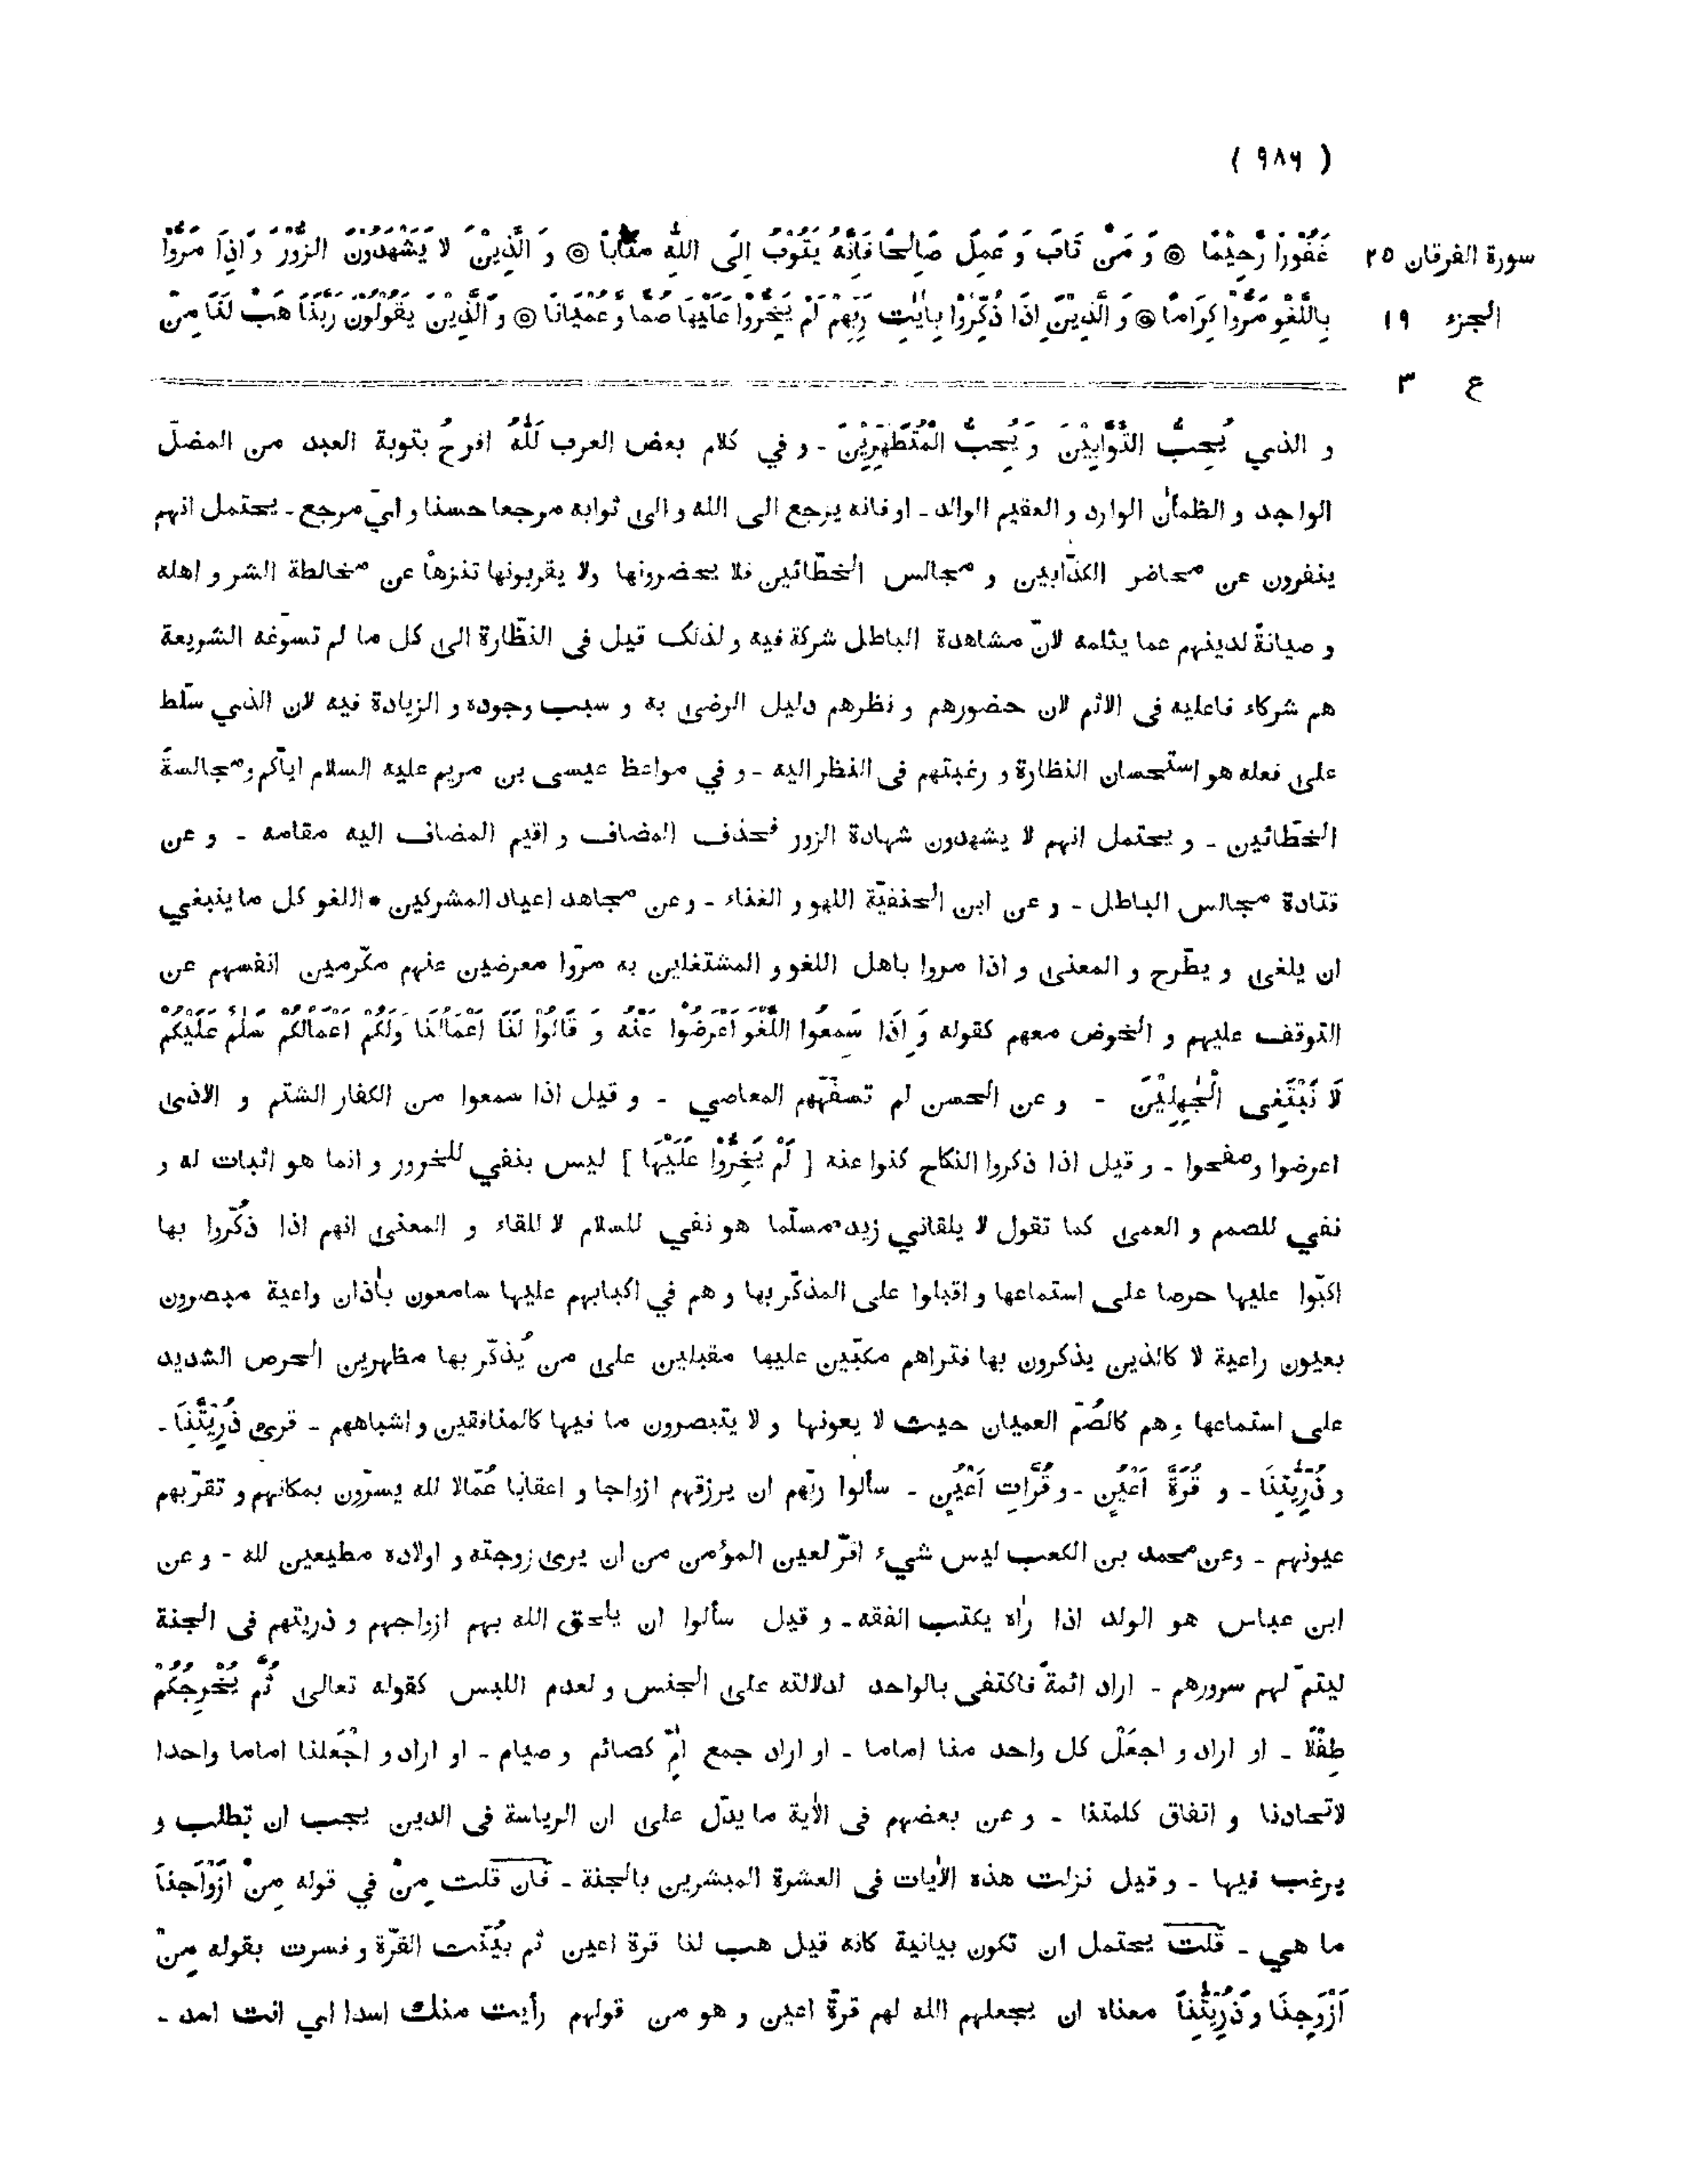 ( ٩٨٦ )
سورة الفرقان ٢٥
الجزء ١٩
ع ٣
غَفُوْرًا رَّحِيْمًا ۞ وَ مَنْ تَابَ وَ عَمِلَ صَالِحًا فَاِنَّهُ يَتُوْبُ اِلَى اللّٰهِ مَتَابًا ۞ وَ الَّذِيْنَ لَا يَشْهَدُوْنَ الزُّوْرَ وَ اِذَا مَرُّوْا
بِاللَّغْوِ مَرُّوْا كِرَامًا ۞ وَ الَّذِيْنَ اِذَا ذُكِّرُوْا بِاٰيٰتِ رَبِّهِمْ لَمْ يَخِرُّوْا عَلَيْهَا صُمًّا وَّ عُمْيَانًا ۞ وَ الَّذِيْنَ يَقُوْلُوْنَ رَبَّنَا هَبْ لَنَا مِنْ
و الذي يُحِبُّ التَّوَّابِيْنَ وَ يُحِبُّ الْمُتَطَهِّرِيْنَ - و في كلام بعض العرب لَلّٰهُ افرحُ بتوبة العبد من المضلّ
الواجد و الظمأن الوارد و العقيم الوالد - او فانه يرجع الى الله و الى ثوابه مرجعا حسنا و ايّ مرجع - يحتمل انهم
ينفرون عن محاضر الكذّابين و مجالس الخطّائين فلا يحضرونها ولا يقربونها تنزهاً عن مخالطة الشر و اهله
و صيانةً لدينهم عما يثلمه لانّ مشاهدة الباطل شركة فيه و لذلك قيل فى النظّارة الى كل ما لم تسوّغه الشريعة
هم شركاء فاعليه فى الاثم لان حضورهم و نظرهم دليل الرضى به و سبب وجوده و الزيادة فيه لان الذي سلّط
على فعله هو استحسان النظارة و رغبتهم فى النظر اليه - و في مواعظ عيسى بن مريم عليه السلام اياكم و مجالسةَ
الخطّائين - و يحتمل انهم لا يشهدون شهادة الزور فحذف المضاف و اقيم المضاف اليه مقامه - و عن
قتادة مجالس الباطل - و عن ابن الحنفيّة اللهو و الغناء - و عن مجاهد اعياد المشركين * اللغو كل ما ينبغي
ان يلغى و يطّرح و المعنى و اذا مروا باهل اللغو و المشتغلين به مرّوا معرضين عنهم مكرّمين انفسهم عن
التوقف عليهم و الخوض معهم كقوله وَ اِذَا سَمِعُوا اللَّغْوَ اَعْرَضُوْا عَنْهُ وَ قَالُوْا لَنَا اَعْمَالُنَا وَلَكُمْ اَعْمَالُكُمْ سَلٰمٌ عَلَيْكُمْ
لَا نَبْتَغِى الْجٰهِلِيْنَ - و عن الحسن لم تسفّههم المعاصي - و قيل اذا سمعوا من الكفار الشتم و الاذى
اعرضوا و صفحوا - و قيل اذا ذكروا النكاح كنوا عنه [ لَمْ يَخِرُّوْا عَلَيْهَا ] ليس بنفي للخرور و انما هو اثبات له و
نفي للصمم و العمى كما تقول لا يلقاني زيد مسلّما هو نفي للسلام لا للقاء و المعنى انهم اذا ذُكّروا بها
اكبّوا عليها حرصا على استماعها و اقبلوا على المذكّر بها و هم في اكبابهم عليها سامعون بأذان واعية مبصرون
بعيون راعية لا كالذين يذكرون بها فتراهم مكبّين عليها مقبلين على من يُذكّر بها مظهرين الحرص الشديد
على استماعها وهم كالصُمّ العميان حيث لا يعونها و لا يتبصرون ما فيها كالمنافقين و اشباههم - قرئ ذُرِّيَّتِنَا -
و ذُرِّيّٰتِنَا - و قُرَّةَ اَعْيُنٍ - و قُرَّاتِ اَعْيُنٍ - سألوا ربّهم ان يرزقهم ازواجا و اعقابا عُمّالا لله يسرّون بمكانهم و تقرّبهم
عيونهم - وعن محمد بن الكعب ليس شيء اقرّ لعين المؤمن من ان يرى زوجته و اولاده مطيعين لله - و عن
ابن عباس هو الولد اذا رأه يكتب الفقه - و قيل سألوا ان يلحق الله بهم ازواجهم و ذريتهم فى الجنة
ليتمّ لهم سرورهم - اراد ائمةً فاكتفى بالواحد لدلالته على الجنس و لعدم اللبس كقوله تعالى ثُمَّ يُخْرِجُكُمْ
طِفْلًا - او اراد و اجعَلْ كل واحد منا اماما - او اراد جمع اٰمّ كصائم و صيام - او اراد و اجْعَلنا اماما واحدا
لاتحادنا و اتفاق كلمتنا - و عن بعضهم فى الأية ما يدّل على ان الرياسة فى الدين يجب ان تطلب و
يرغب فيها - و قيل نزلت هذه الأيات فى العشرة المبشرين بالجنة - فان قلت مِنْ في قوله مِنْ اَزْوَاجِنَا
ما هي - قلت يحتمل ان تكون بيانية كانه قيل هب لنا قرة اعين ثم بُيّنت القرّة و فسرت بقوله مِنْ
اَزْوٰجِنَا وَ ذُرِّيّٰتِنَا معناه ان يجعلهم الله لهم قرةَ اعين و هو من قولهم رأيت منك اسدا اي انت اسد -